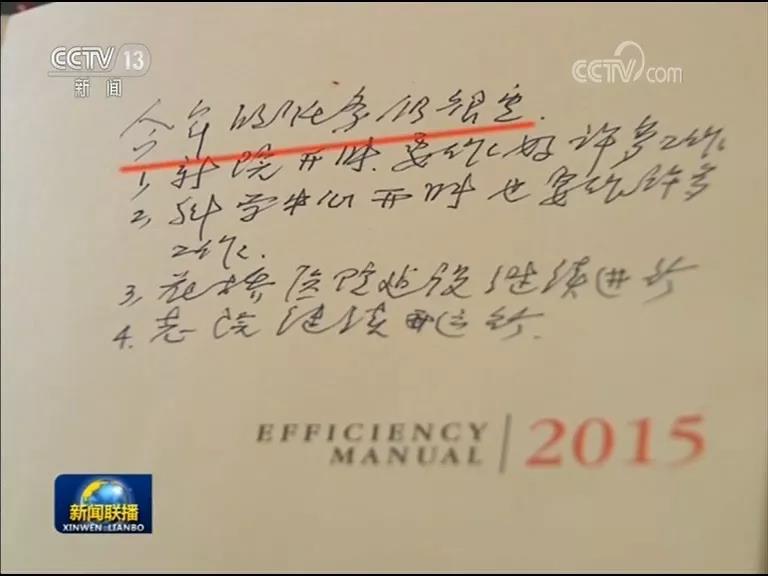 CCTV 13
新闻
CCTV.com
今年的任务仍很重.
1, 新院开时, 要做好许多工作
2, 科学中心开时也要做许多
工作.
3, 医院建设继续进行
4. 老院继续运行.
EFFICIENCY
MANUAL
2015
新闻联播
XINWEN LIANBO